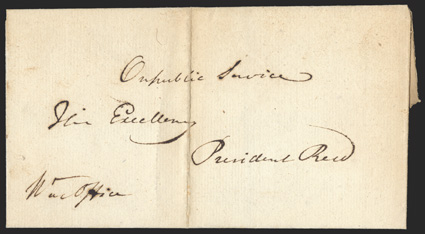 On public Service
His Excellency
President Reed
War Office